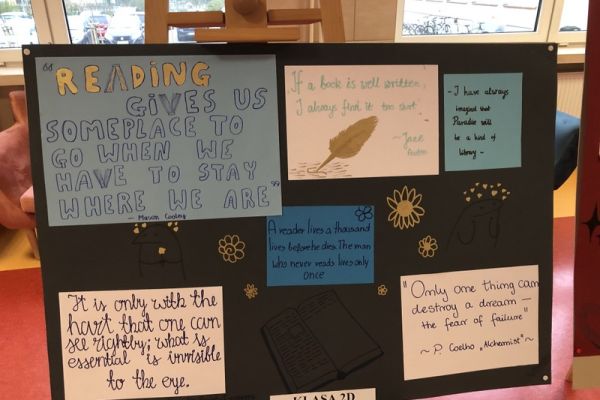 "READING
GIVES US
SOMEPLACE TO
GO WHEN WE
HAVE TO STAY
WHERE WE ARE"
- Mason Cooley
If a book is well written,
I always find it too short.
- Jane
Austen
- I have always
imagined that
Paradise will
be a kind of
library -
A reader lives a thousand
lives before he dies. The man
who never reads lives only
once
It is only with the
hart that one can
see rightly; what is
essential is invisible
to the eye.
"Only one thing can
destroy a dream -
the fear of failure"
~ P. Coelho „Alchemist" ~
KLASA 2D